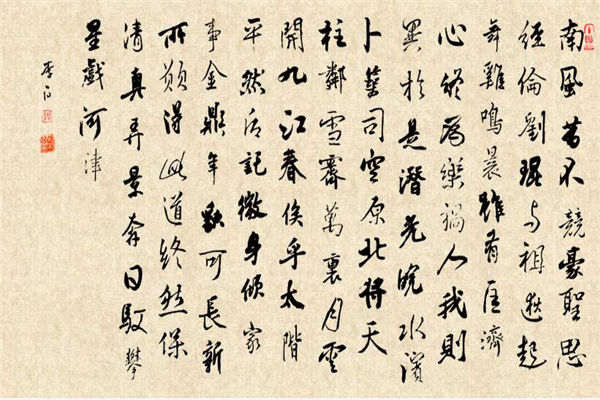 南風昔不競豪聖思
經倫劉琨与祖逖起
舞雞鳴晨雖有匡濟
心終為樂禍人我則
異於是潛光皖水濱
卜築司空原北將天
柱鄰雪霽萬裏月雲
開九江春俟乎太階
平然后記微身傾家
事金鼎年貌可長新
所願得此道終然保
清真弄景奔日馭攀
星戲河津
李白